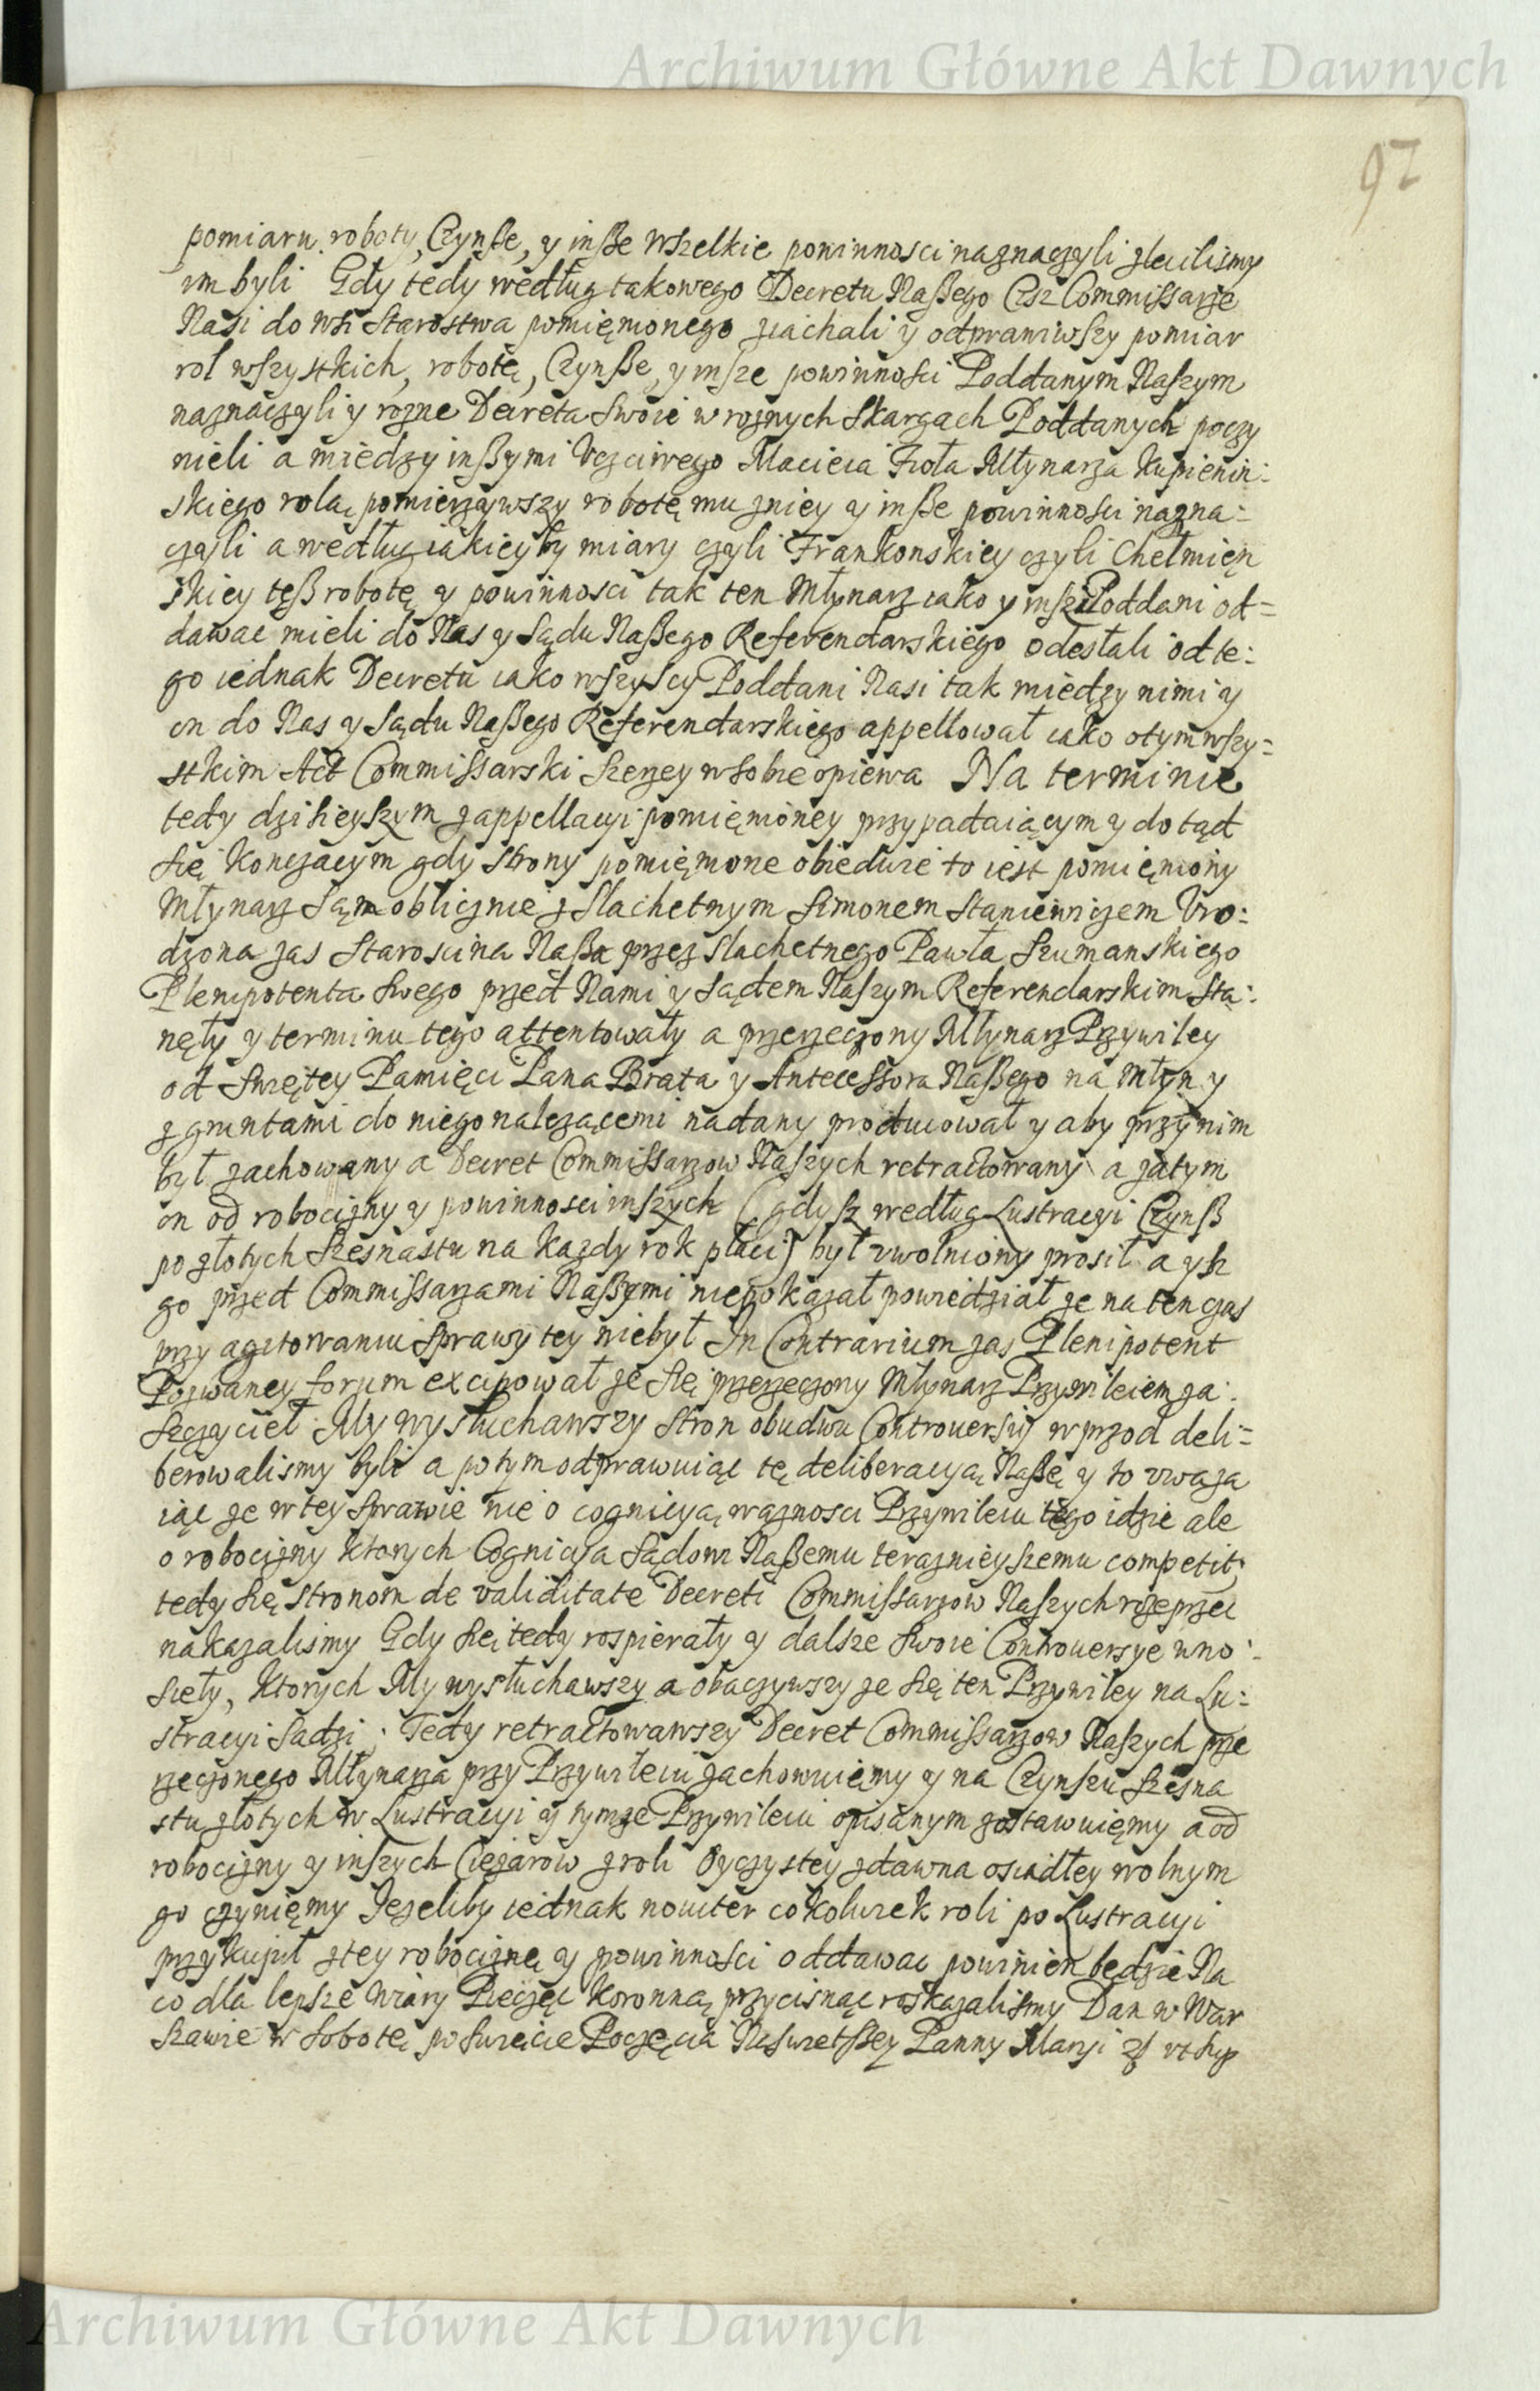 Archiwum Główne Akt Dawnych
97
pomiaru roboty, Czynße, y inße wszelkie powinnosci naznaczyli zlecilismy
im byli Gdy tedy według takowego Decretu Naßego Ciż Commissarze
Nasi do wsi Starostwa pomięnionego ziachali y odprawiwszy pomiar
rol wszystkich, robotę, Czynße, y insze powinnosci Poddanym Naszym
naznaczyli y rozne Decreta swoie w roznych skargach Poddanych poczy
nieli a miedzy inßymi Vczciwego Macieia Zioła Młynarza Kupienin:
skiego rolą pomierzywszy robotę mu zniey y inße powinnosci nazna:
czyli a według iakieyby miary czyli Frankonskiey czyli Chełmięn
skiey tęß robotę y powinnosci tak ten Młynarz iako y inszi Poddani od=
dawac mieli do Nas y Sądu Naßego Referendarskiego odesłali od te:
go iednak Decretu iako wszyscy Poddani Nasi tak miedzy nimi y
on do Nas y Sądu Naßego Referendarskiego appellował iako otym wszy=
stkim Act Commissarski szerzey w sobie opiewa Na terminie
tedy dzisieyszym z appellacyi pomięnioney przypadaiącym y dotąd
się konczącym gdy strony pomięnione obiedwie to iest pomięniony
Młynarz sąm oblicznie z Slachetnym Simonem Staniewiczem Vro:
dzona zas Staroscina Naßa przez Slachetnego Pawła Szumanskiego
Plenipotenta swego przed Nami y Sądem Naszym Referendarskim sta:
nęły y terminu tego attentowały a przerzeczony Młynarz Przywiley
od Swiętey Pamięci Pana Brata y Antecessora Naßego na Młyn y
z gruntami do niego nalezącemi nadany producował y aby przy nim
był zachowany a Decret Commissarzow Naszych retractowany a zatym
on od robocizny y powinnosci inszych (gdysz według Lustracyi Czynß
po złotych szesnastu na kazdy rok płaci) był vwolniony prosił a ysz
go przed Commissarzami Naßymi niepokazał powiedział ze na tenczas
przy agitowaniu sprawy tey niebył In Contrarium zas Plenipotent
Pozwaney forum excipował ze się przerzeczony Młynarz Przywileiem za:
szczyciel My wysłuchawszy stron obudwu Controuersij wprzod deli=
berowalismy byli a potym odprawuiąc tę deliberacyą Naßę y to vwaza
iąc ze w tey sprawie nie o cognicyą waznosci Przywileiu tego idzie ale
o robocizny ktorych Cognicya Sądowi Naßemu terazniey szemu competit
tedy się stronom de validitate Decreti Commissarzow Naszych rozeprzec
nakazalismy Gdy się tedy rospierały y dalsze swoie Controuersye wno:
sieły, ktorych My wysłuchawszy a obaczywszy ze się ten Przywiley na Lu:
stracyi sadzi, Tedy retractowawszy Decret Commissarzow Naszych prze
rzeczonego Młynarza przy Przywileiu zachowuięmy y na Czynszu szesna
stu złotych w Lustracyi y tymze Przywileiu opisanym zostawuięmy a od
robocizny y inszych Ciężarow z roli Oyczystey zdawna osiadłey wolnym
go czynięmy Iezeliby iednak nouiter cokolwiek roli po Lustracyi
przykupił z tey robociznę y powinnosci oddawac powinien będzie Na
co dla lepsze wiary Pieczęc Koronną przycisnąc roskazalismy Dan w War
szawie w Sobotę po Swięcie Poczęcia Naswietszey Panny Maryi
Archiwum Główne Akt Dawnych